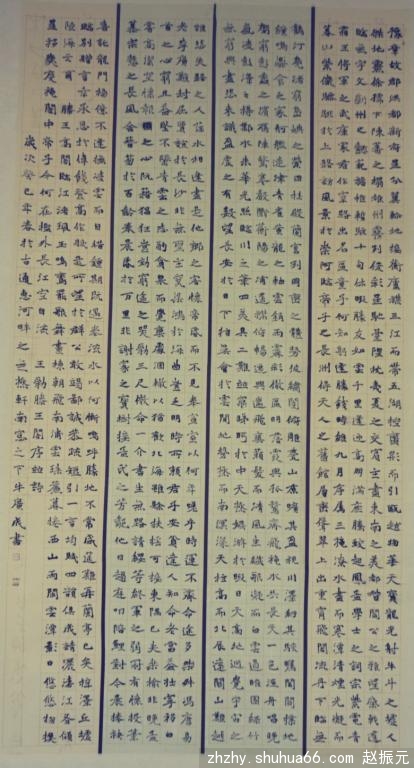 豫章故郡洪都新府星分翼軫地接衡廬襟三江而帶五湖控蠻荊而引甌越物華天寶龍光射牛斗之墟人
傑地靈徐孺下陳蕃之榻雄州霧列俊彩星馳臺隍枕夷夏之交賓主盡東南之美都督閻公之雅望棨戟遙
臨宇文新州之懿範襜帷暫駐十旬休暇勝友如雲千里逢迎高朋滿座騰蛟起鳳孟學士之詞宗紫電青
霜王將軍之武庫家君作宰路出名區童子何知躬逢勝餞時維九月序屬三秋潦水盡而寒潭清煙光凝而
暮山紫儼驂騑於上路訪風景於崇阿臨帝子之長洲得天人之舊館層巒聳翠上出重霄飛閣流丹下臨無
鶴汀鳧渚窮島嶼之縈回桂殿蘭宮列岡巒之體勢披繡闥俯雕甍山原曠其盈視川澤紆其駭矚閭閻撲地
鐘鳴鼎食之家舸艦迷津青雀黃龍之軸雲銷雨霽彩徹區明落霞與孤鶩齊飛秋水共長天一色漁舟唱晚
響窮彭蠡之濱雁陣驚寒聲斷衡陽之浦遙襟俯暢逸興遄飛爽籟發而清風生纖歌凝而白雲遏睢園綠竹
氣凌彭澤之樽鄴水朱華光照臨川之筆四美具二難並窮睇眄於中天極娛遊於暇日天高地迥覺宇宙之
無窮興盡悲來識盈虛之有數望長安於日下指吳會於雲間地勢極而南溟深天柱高而北辰遠關山難越
誰悲失路之人萍水相逢盡是他鄉之客懷帝閽而不見奉宣室以何年嗟乎時運不齊命途多舛馮唐易
老李廣難封屈賈誼於長沙非無聖主竄梁鴻於海曲豈乏明時所賴君子安貧達人知命老當益壯寧移白
首之心窮且益堅不墜青雲之志酌貪泉而覺爽處涸轍以猶歡北海雖賒扶搖可接東隅已逝桑榆非晚孟
嘗高潔空懷報國之心阮籍猖狂豈效窮途之哭勃三尺微命一介書生無路請纓等終軍之弱冠有懷投筆
慕宗愨之長風舍簪笏於百齡奉晨昏於萬里非謝家之寶樹接孟氏之芳鄰他日趨庭叨陪鯉對今晨捧袂
喜託龍門楊意不逢撫凌雲而自惜鍾期既遇奏流水以何慚嗚呼勝地不常盛筵難再蘭亭已矣梓澤丘墟
臨別贈言幸承恩於偉餞登高作賦是所望於群公敢竭鄙誠恭疏短引一言均賦四韻俱成請灑潘江各傾
陸海云爾 滕王高閣臨江渚佩玉鳴鸞罷歌舞畫棟朝飛南浦雲珠簾暮捲西山雨閒雲潭影日悠悠物換
星移幾度秋閣中帝子今何在檻外長江空自流 王勃滕王閣序並詩
歲次癸巳年春於古通惠河畔之軒南窗之下牛廣成書
zhzhy.shuhua66.com 赵振元